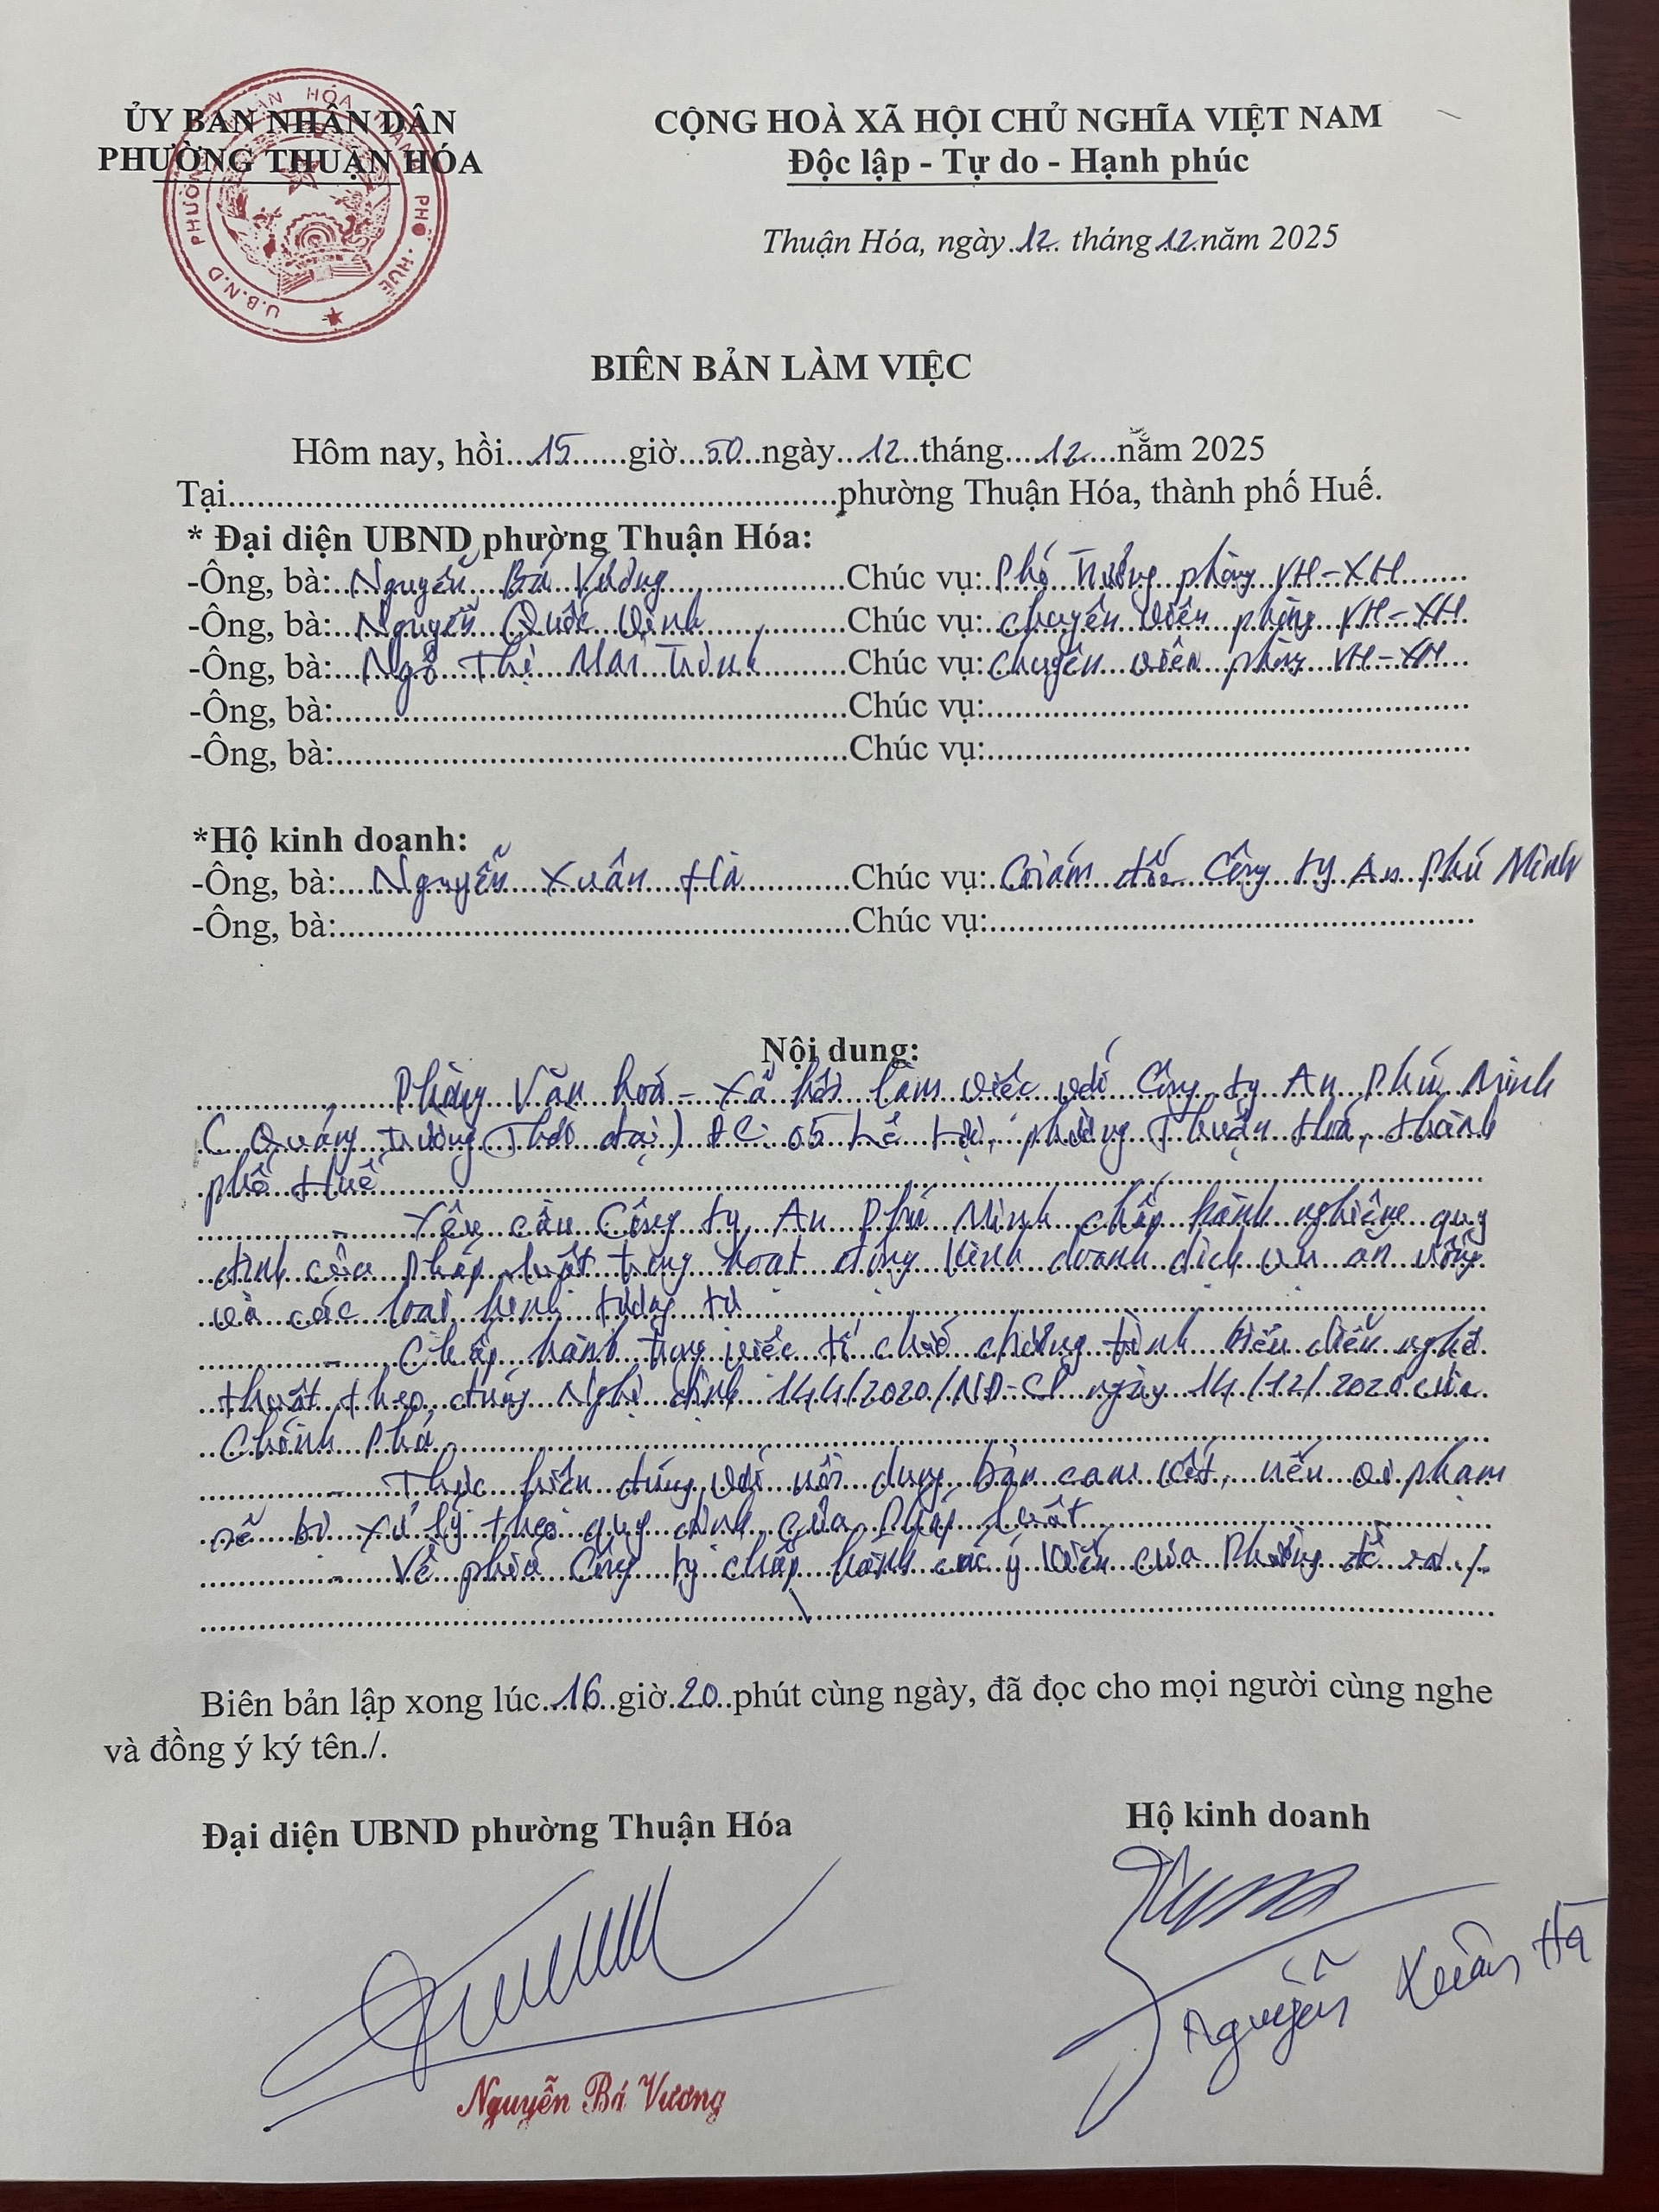 ỦY BAN NHÂN DÂN
PHƯỜNG THUẬN HÓA
CỘNG HOÀ XÃ HỘI CHỦ NGHĨA VIỆT NAM
Độc lập - Tự do - Hạnh phúc
Thuận Hóa, ngày 12 tháng 12 năm 2025
U.B.N.D PHƯỜNG THUẬN HÓA THÀNH PHỐ HUẾ
BIÊN BẢN LÀM VIỆC
Hôm nay, hồi 15 giờ 50 ngày 12 tháng 12 năm 2025
Tại phường Thuận Hóa, thành phố Huế.
* Đại diện UBND phường Thuận Hóa:
-Ông, bà: Nguyễn Bá Vương Chúc vụ: Phó Trưởng phòng VH-XH
-Ông, bà: Nguyễn Quốc Vinh Chúc vụ: chuyên viên phòng VH-XH
-Ông, bà: Ngô Thị Mai Trinh Chúc vụ: chuyên viên phòng VH-XH
-Ông, bà: Chúc vụ:
-Ông, bà: Chúc vụ:
*Hộ kinh doanh:
-Ông, bà: Nguyễn Xuân Hà Chúc vụ: Giám đốc Công ty An Phú Minh
-Ông, bà: Chúc vụ:
Nội dung:
Phòng Văn hoá - Xã hội làm việc với Công ty An Phú Minh
(Quảng trường Thời đại) ĐC: 05 Lê Lợi, phường Thuận Hoá, thành
phố Huế
- Yêu cầu Công ty An Phú Minh chấp hành nghiêm quy
định của pháp luật trong hoạt động kinh doanh dịch vụ ăn uống
và các loại hình tương tự
- Chấp hành trong việc tổ chức chương trình biểu diễn nghệ
thuật theo đúng Nghị định 144/2020/NĐ-CP ngày 14/12/2020 của
Chính Phủ
- Thực hiện đúng với nội dung bản cam kết, nếu vi phạm
sẽ bị xử lý theo quy định của Pháp luật
- Về phía Công ty chấp hành các ý kiến của Phường đề ra./.
Biên bản lập xong lúc 16 giờ 20 phút cùng ngày, đã đọc cho mọi người cùng nghe
và đồng ý ký tên./.
Đại diện UBND phường Thuận Hóa
Hộ kinh doanh
Nguyễn Bá Vương
Nguyễn Xuân Hà